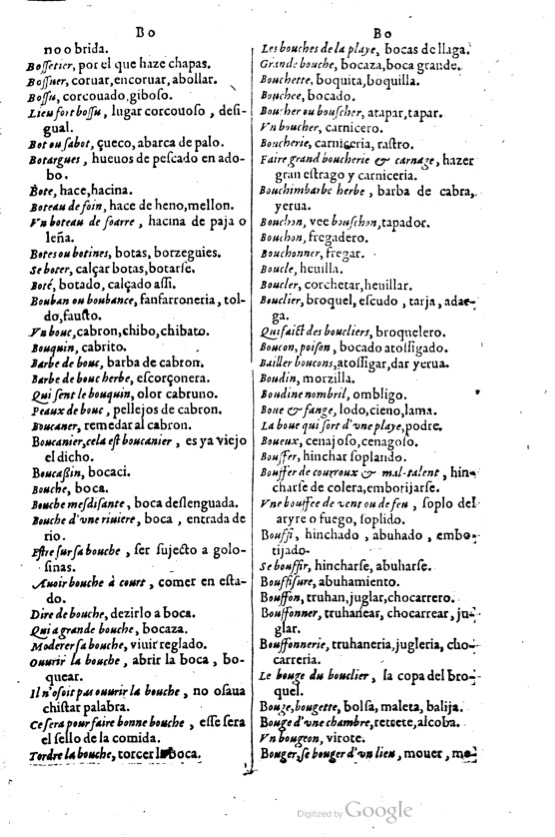 Bo
no o brida.
Boſſetier, por el que haze chapas.
Boſſuer, coruar, encoruar, abollar.
Boſſu, corcouado, giboſo.
Lieu fort boſſu, lugar corcouoſo, deſi-
gual.
Bot ou ſabot, çueco, abarca de palo.
Botargues, hueuos de peſcado en ado-
bo.
Bote, hace, hacina.
Boteau de foin, hace de heno, mellon.
Vn boteau de foarre, hacina de paja o
leña.
Botes ou botines, botas, borzeguies.
Se boter, calçar botas, botarſe.
Boté, botado, calçado aſſi.
Bouban ou boubance, fanfarroneria, tol-
do, fauſto.
Vn bouc, cabron, chibo, chibato.
Bouquin, cabrito.
Barbe de bouc, barba de cabron.
Barbe de bouc herbe, eſcorçonera.
Qui ſent le bouquin, olor cabruno.
Peaux de bouc, pellejos de cabron.
Boucaner, remedar al cabron.
Boucanier, cela eſt boucanier, es ya viejo
el dicho.
Boucaßin, bocaci.
Bouche, boca.
Bouche meſdiſante, boca deſlenguada.
Bouche d'vne riuiere, boca, entrada de
rio.
Eſtre ſur ſa bouche, ſer ſujecto a golo-
ſinas.
Auoir bouche à court, comer en eſta-
do.
Dire de bouche, dezirlo a boca.
Qui a grande bouche, bocaza.
Moderer ſa bouche, viuir reglado.
Ouurir la bouche, abrir la boca, bo-
quear.
Il n'oſoit pas ouurir la bouche, no oſaua
chiſtar palabra.
Ce ſera pour faire bonne bouche, eſſe ſera
el ſello de la comida.
Tordre la bouche, torcer la boca.
Bo
Les bouches de la playe, bocas de llaga.
Grande bouche, bocaza, boca grande.
Bouchette, boquita, boquilla.
Bouchee, bocado.
Boucher ou bouſcher, atapar, tapar.
Vn boucher, carnicero.
Boucherie, carniceria, raſtro.
Faire grand boucherie & carnage, hazer
gran eſtrago y carniceria.
Bouchimbarbe herbe, barba de cabra,
yerua.
Bouchon, vee bouſchon, tapador.
Bouchon, fregadero.
Bouchonner, fregar.
Boucle, heuilla.
Boucler, corchetar, heuillar.
Bouclier, broquel, eſcudo, tarja, adar-
ga.
Qui faict des boucliers, broquelero.
Boucon, poiſon, bocado atoſſigado.
Bailler boucons, atoſſigar, dar yerua.
Boudin, morzilla.
Boudine nombril, ombligo.
Boue & fange, lodo, cieno, lama.
La boue qui ſort d'vne playe, podre.
Boueux, cenajoſo, cenagoſo.
Bouffer, hinchar ſoplando.
Bouffer de courroux & mal-talent, hin-
charſe de colera, emborijarſe.
Vne bouffee de vent ou de feu, ſoplo del
ayre o fuego, ſoplido.
Bouffi, hinchado, abuhado, embo-
tijado.
Se bouffir, hincharſe, abuharſe.
Bouffiſure, abuhamiento.
Bouffon, truhan, juglar, chocarrero.
Bouffonner, truhanear, chocarrear, ju-
glar.
Bouffonnerie, truhaneria, jugleria, cho-
carreria.
Le bouge du bouclier, la copa del bro-
quel.
Bouge, bougette, bolſa, maleta, balija.
Bouge d'vne chambre, retrete, alcoba.
Vn bougeon, virote.
Bouger, ſe bouger d'vn lieu, mouer, me-
Digitized by Google